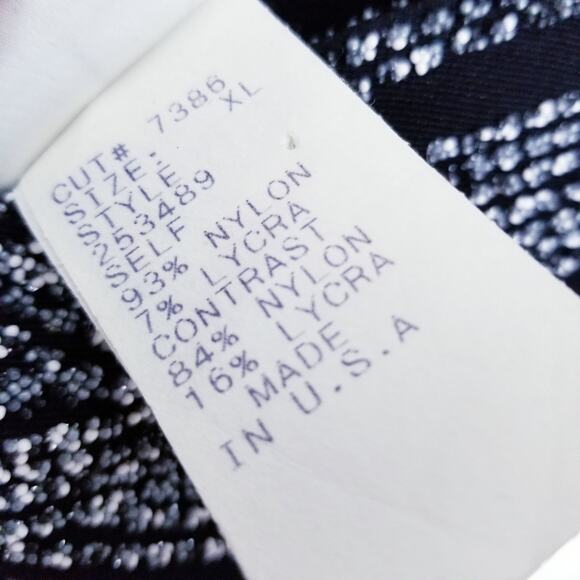 CUT# 7386
SIZE: XL
STYLE
S253489
SELF
93% NYLON
7% LYCRA
CONTRAST
84% NYLON
16% LYCRA
MADE
IN U.S.A